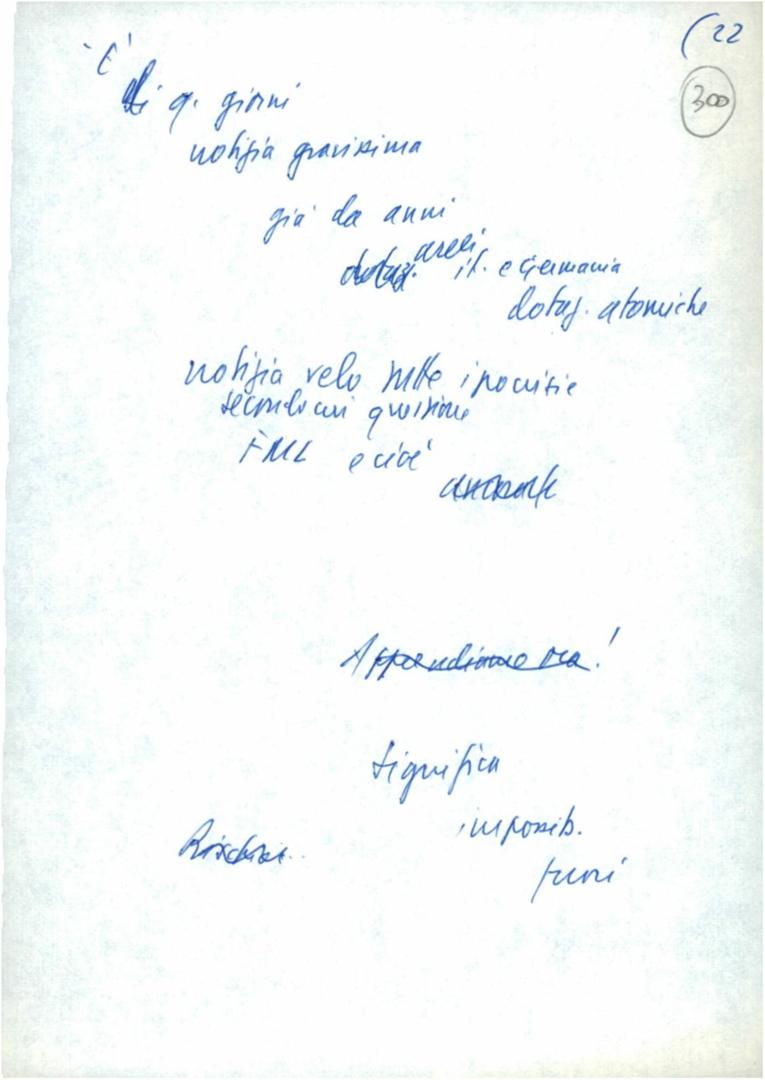 (22
300
E'
di q. giorni
notizia gravissima
già da anni
aerei
dotaz. it. e Germania
dotaz. atomiche
notizia velo tutte ipocrisie
secondo cui questione
FML e cioè
Apprendiamo ora!
significa
impossib.
Rischio
fuori